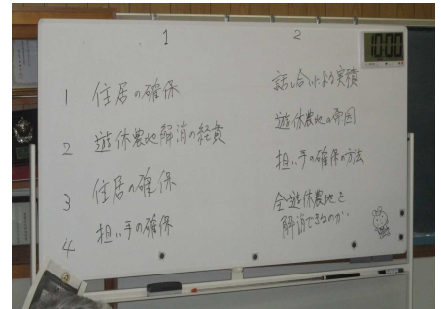 1 2
10:00
1 住居の確保 話し合いによる実績
2 遊休農地解消の経費 遊休農地の帯因
3 住居の確保 担い手の確保の方法
4 担い手の確保 全遊休農地を
解消できるのか